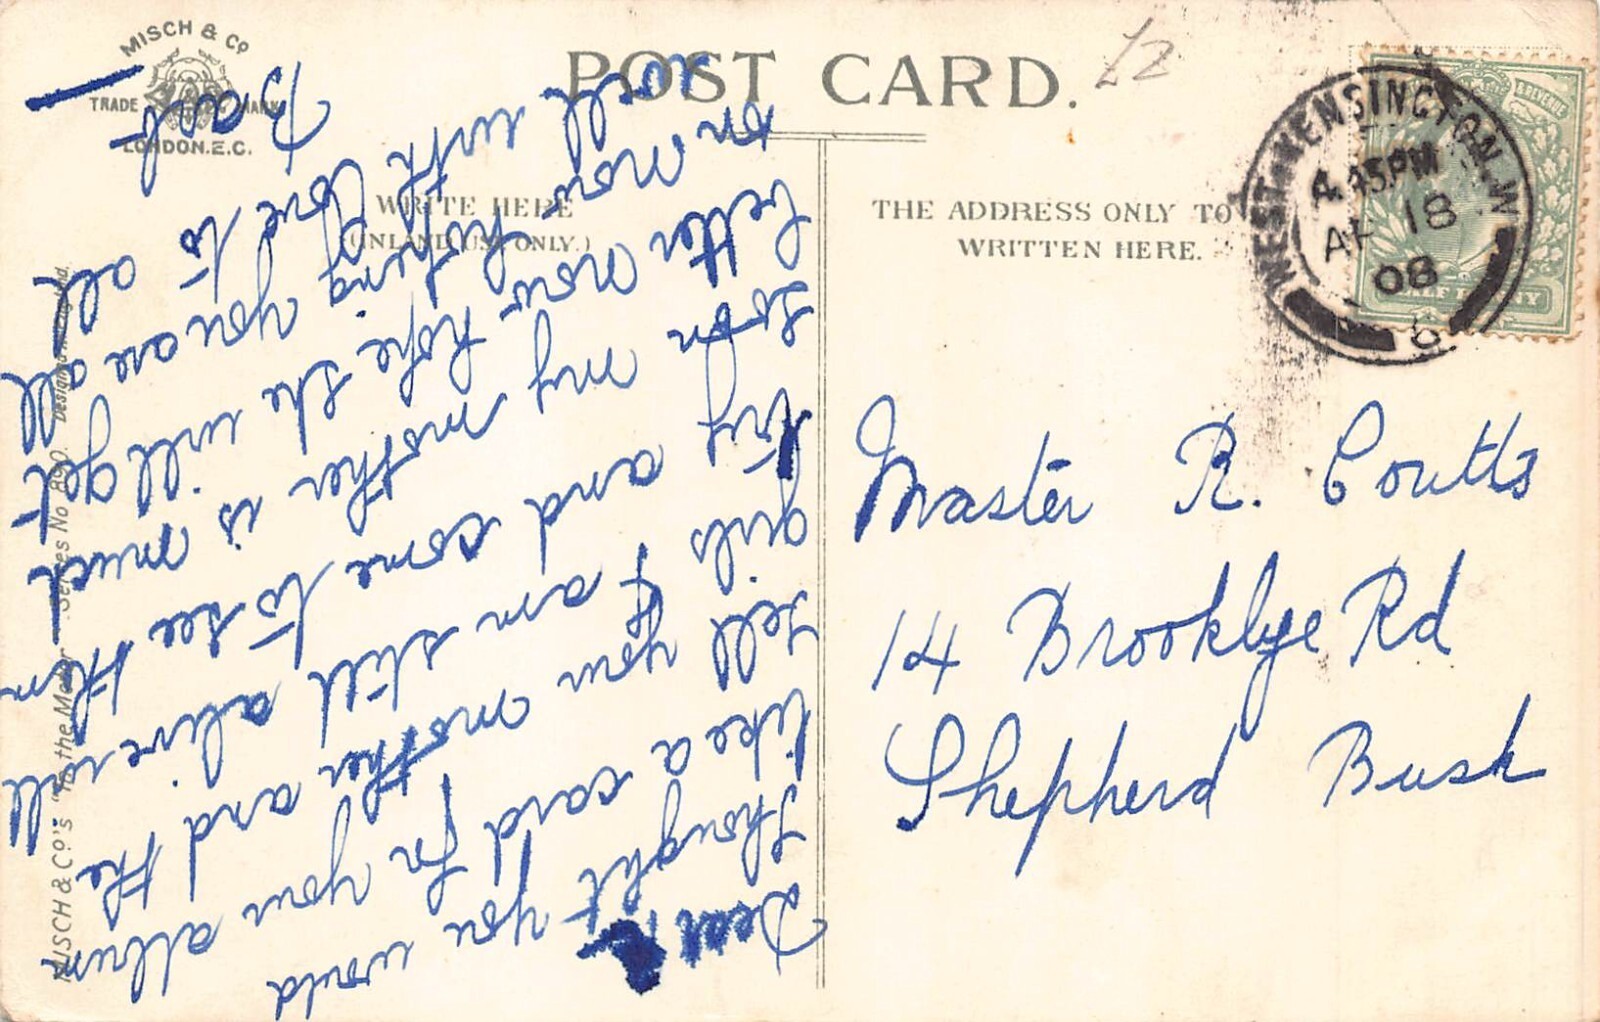 MISCH & Co
TRADE MARK
LONDON.E.C.
POST CARD.
1/2
WRITE HERE
(INLAND USE ONLY.)
THE ADDRESS ONLY TO
WRITTEN HERE.
WEST KENSINGTON. W
4.45PM
AP 18
08
6
& REVENUE
HALF PENNY
Dear R
thought you would
like a card for your album
tell your mother and the
girls I am still alive will
try and come to see them
soon my mother is much
better now hope she will get
on now hoping you are all
well with love to all
Master R. Coutts
14 Brooklye Rd
Shepherd Bush
MISCH & Co.'s "To the Series No Designed England.